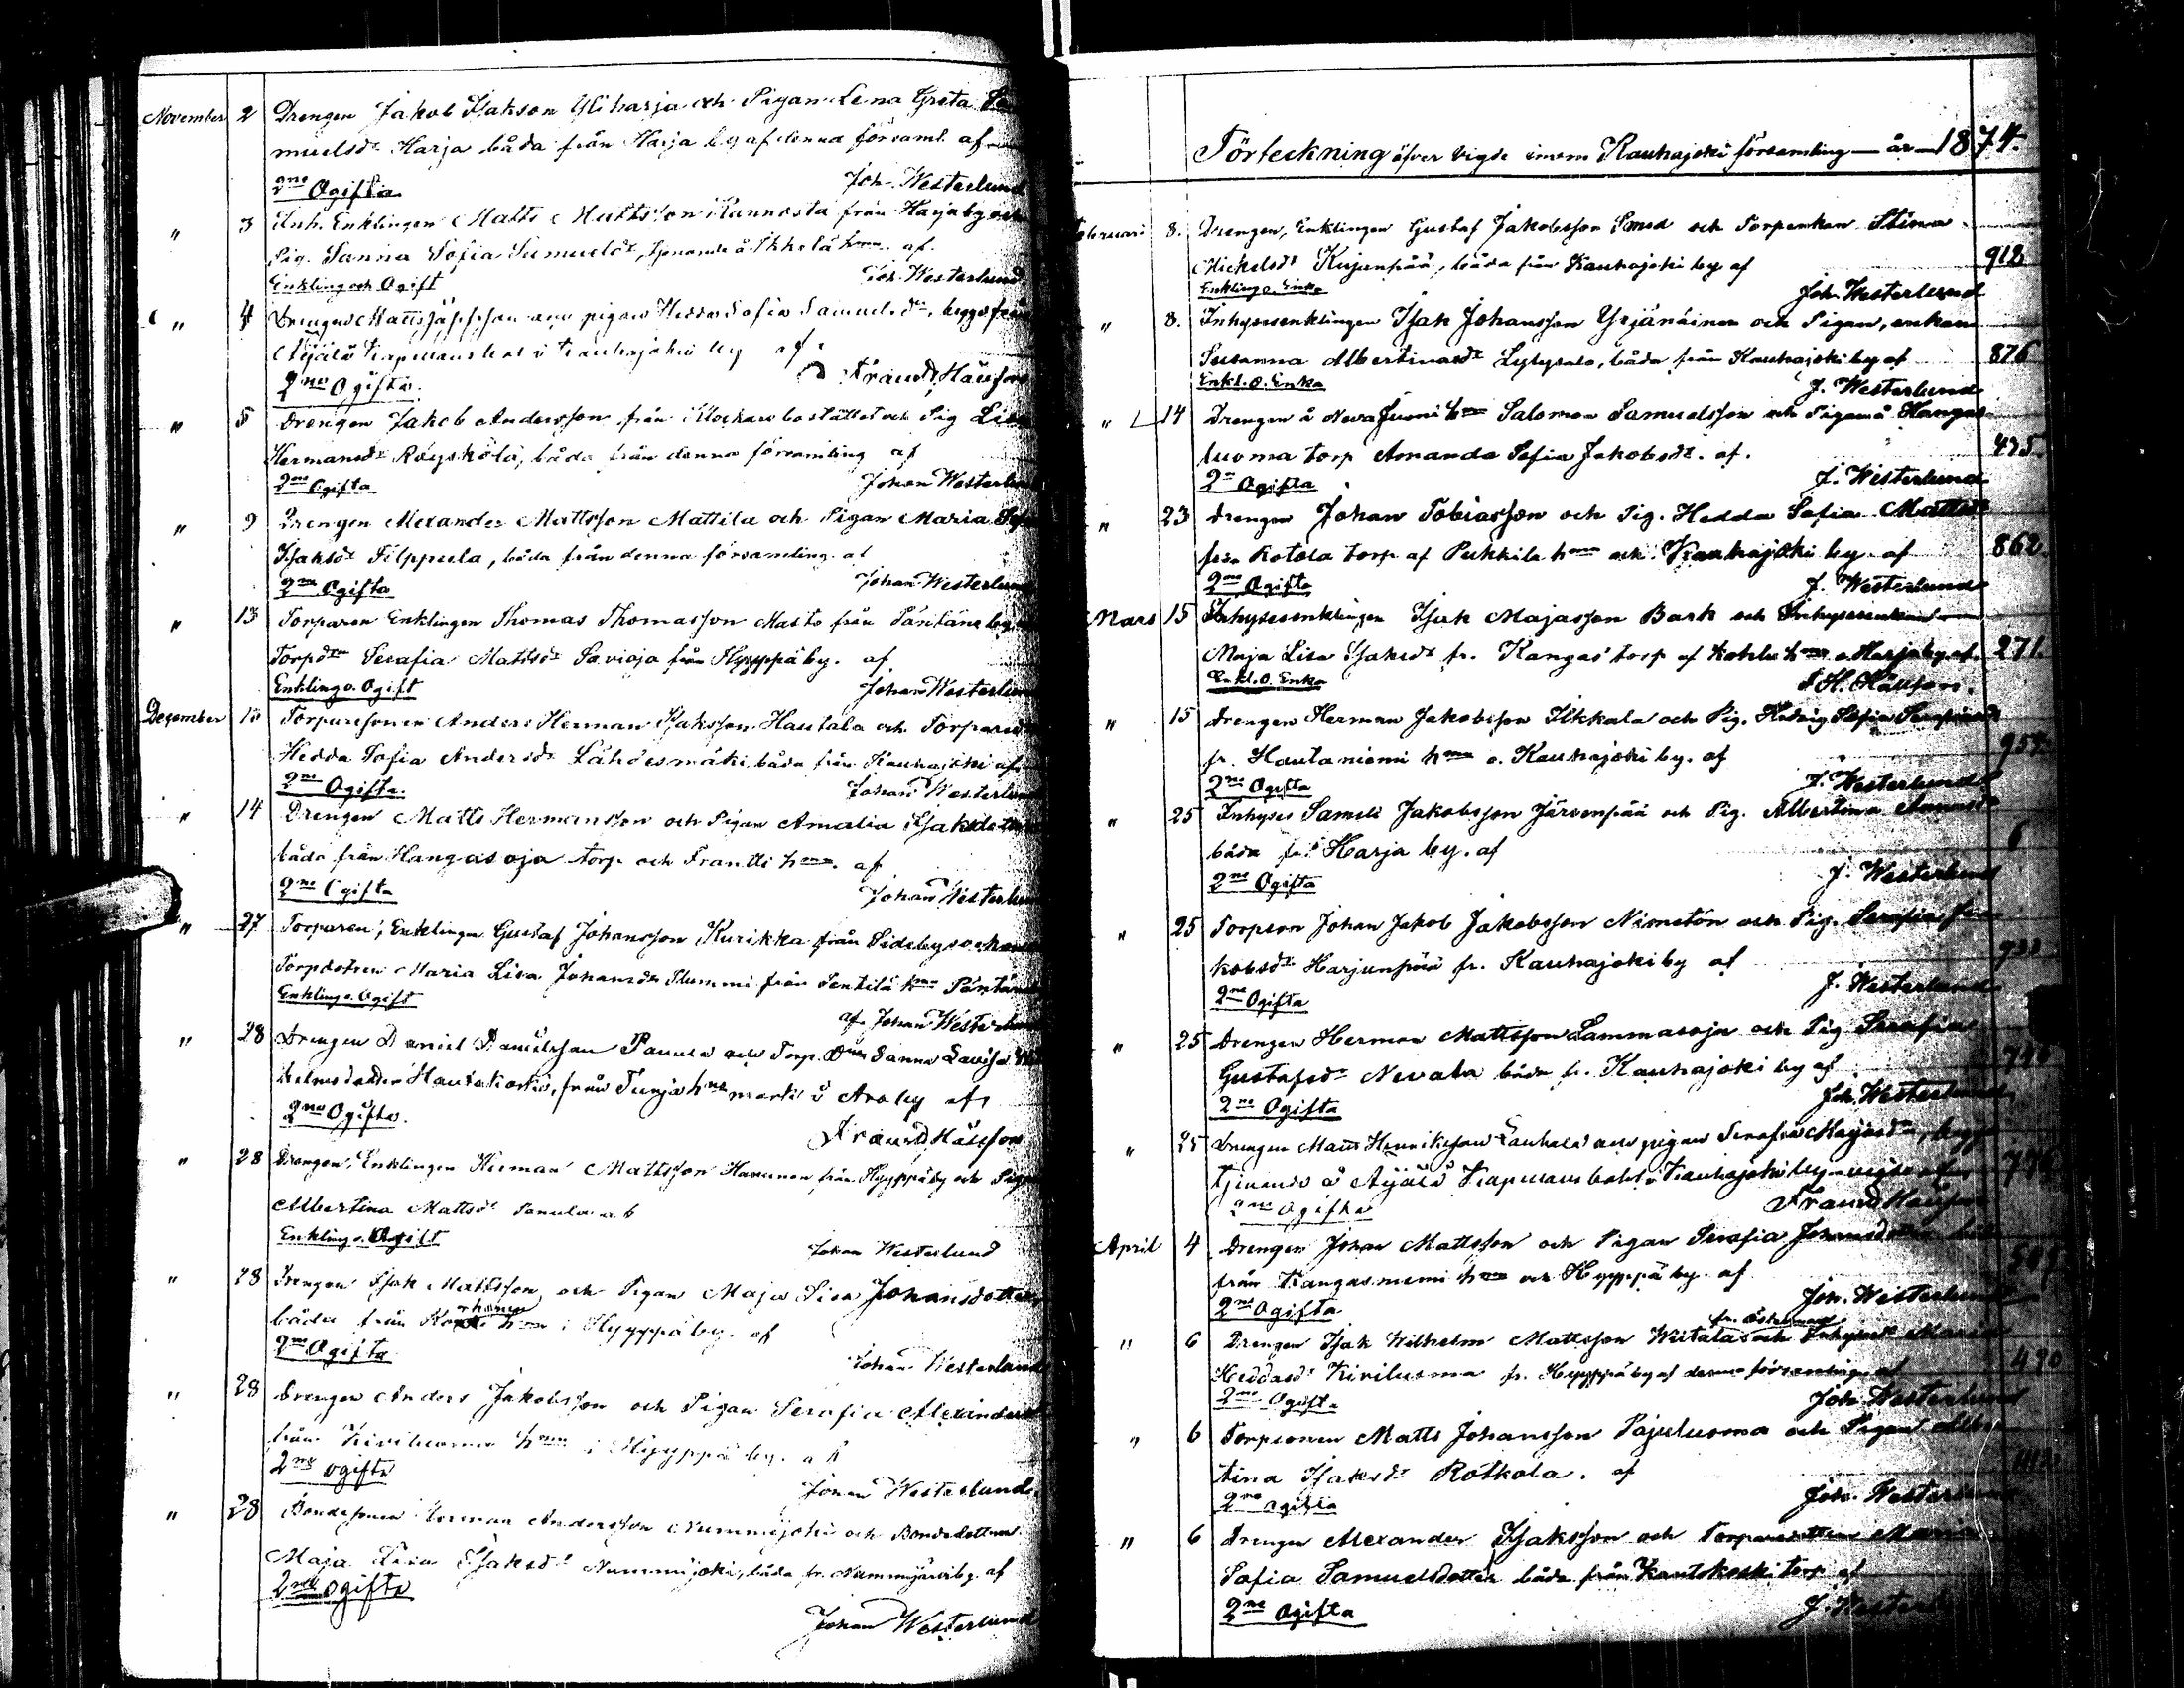 November 2 Drengen Jakob Isakson Yliharja och Pigan Lena Greta Sa
muelsdr Harja båda från Harja by af denna församl. af
2ne Ogifta Joh. Westerlund
" 3 Inh. Enklingen Matts Mattsson Rannasta från Harja by och
Pig. Sanna Sofia Samuelsdr, tjenande å Ikkelä hmn. af
Enkling och Ogift Joh. Westerlund
" 4 Drengen Matts och pigan Hedda Sofia Samuelsdr, begge från
Äijälä Kapellansbol i Kauhajoki by af
2ne Ogifta. Frans Häusson
" 5 Drengen Jakob Andersson från Klockarebostället och Pig Lisa
Hermansdr Röyskölä, båda från denna församling af
2ne Ogifta Johan Westerlund
" 9 Drengen Alexander Mattsson Mattila och Pigan Maria
Isaksdr Filppula, båda från denna församling. af
2ne Ogifta Johan Westerlund
" 13 Torparen Enklingen Thomas Thomasson Masto från Päntäne by
Torpdrn Serafia Mattsdr Savioja från Hyyppä by. af
Enkling o. Ogift Johan Westerlund
December Torparesonen Anders Herman Isaksson Hautala och Torpared
Hedda Sofia Andersdr Lähdesmäki båda från Kauhajoki af
2ne Ogifta. Johan Westerlund
" 14 Drengen Matts Hermansson och Pigan Amalia Isaksdotter
båda från Hangasoja torp och Frantti hmn. af
2ne Ogifta Johan Westerlund
" 27 Torparen, Enklingen Gustaf Johansson Kurikka från Sideby socken
Torpdotren Maria Lisa Johansdr Plummi från Pentilä hmn Päntäne
Enkling o. Ogift
af Johan Westerlund
" 28 Drengen Daniel Danielsson Panula och Torp. Dtrn Sanna Lovisa
helmsdotter Hautakoski, från Turja hmn mark i Aro by af
2ne Ogifta.
Frans Häusson
" 28 Drengen, Enklingen Herman Mattsson Havunen från Hyyppä by och Pigan
Albertina Mattsdr Panula af
Enkling o. Ogift Johan Westerlund
" 28 Drengen Isak Mattsson och Pigan Maja Lisa Johansdotter
båda från hmn i Hyyppä by. af
2ne Ogifta Johan Westerlund
" 28 Drengen Anders Jakobsson och Pigan Serafia Alexandersd
från Kiviluoma hmn i Hyyppä by. af
2ne ogifta Johan Westerlund
" 28 Bondesonen Herman Andersson Nummijoki och Bondedottren
Maja Lisa Isaksdr Nummijoki, båda fr. Nummijärvi by. af
2ne ogifta
Johan Westerlund
Förteckning öfver Vigde inom Kauhajoki församling — år — 1874.
Februari 8. Drengen, Enklingen Gustaf Jakobsson Smed och Torpenkan Stina
Mickelsdr Kujanpää, båda från Kauhajoki by af 912
Enkling o. Enka Joh. Westerlund
" 8. Inhysesenklingen Isak Johansson Yrjänäinen och Pigan, enkan
Susanna Albertinasdr Lylysalo, båda från Kauhajoki by af 876
Enkl. o. Enka J. Westerlund
" 14 Drengen å Neva Luomi hmn Salomon Samuelsson och Pigan å Kangas
luoma torp Amanda Sofia Jakobsdr. af. 495
2ne Ogifta J. Westerlund
" 23 Drengen Johan Tobiasson och Pig. Hedda Sofia Mattsdr
från Kotola torp af Pukkila hmn och Kauhajoki by. af 862
2ne Ogifta J. Westerlund
Mars 15 Inhysesenklingen Isak Majasson Bark och Inhysesenkan
Maja Lisa Isaksdr fr. Kangas torp af Kohlu hmn o. Harja by. af 271.
Enkl. o. Enka Häusson.
" 15 Drengen Herman Jakobsson Ikkala och Pig. Hedvig Sofia
fr. Hautaniemi hmn o. Kauhajoki by. af
2ne Ogifta J. Westerlund
" 25 Inhyses Sameli Jakobsson Järvenpää och Pig. Albertina
båda fr. Harja by. af
2ne Ogifta J. Westerlund
" 25 Torpson Johan Jakob Jakobsson Niemetön och Pig. Serafia Ja
kobsdr Harjunpää fr. Kauhajoki by af
2ne Ogifta J. Westerlund
" 25 Drengen Herman Mattsson Lammasoja och Pig Serafia
Gustafsdr Nevala båda fr. Kauhajoki by af
2ne Ogifta Joh. Westerlund
" 25 Drengen Matts Henriksson och pigan Serafia Majasdr, begge
tjenande å Äijälä Kapellans bohl i Kauhajoki by af
2ne Ogifta Frans Häusson
April 4 Drengen Johan Mattsson och Pigan Serafia Johansdotter
från Kangasniemi hmn och Hyyppä by. af
2ne Ogifta Joh. Westerlund
" 6 Drengen Isak Wilhelm Mattsson Wiitala och Maria
Heddasdr Kiviluoma fr. Hyyppä by af denna församling af 490
2ne Ogifta Joh. Westerlund
" 6 Torpsonen Matts Johansson Pajuluoma och Pigan Alber
tina Isaksdr Rotkola. af
2ne ogifta Joh. Westerlund
" 6 Drengen Alexander Isaksson och Torparedottren Maria
Sofia Samuelsdotter båda från Kantokoski torp af
2ne Ogifta J. Westerlund